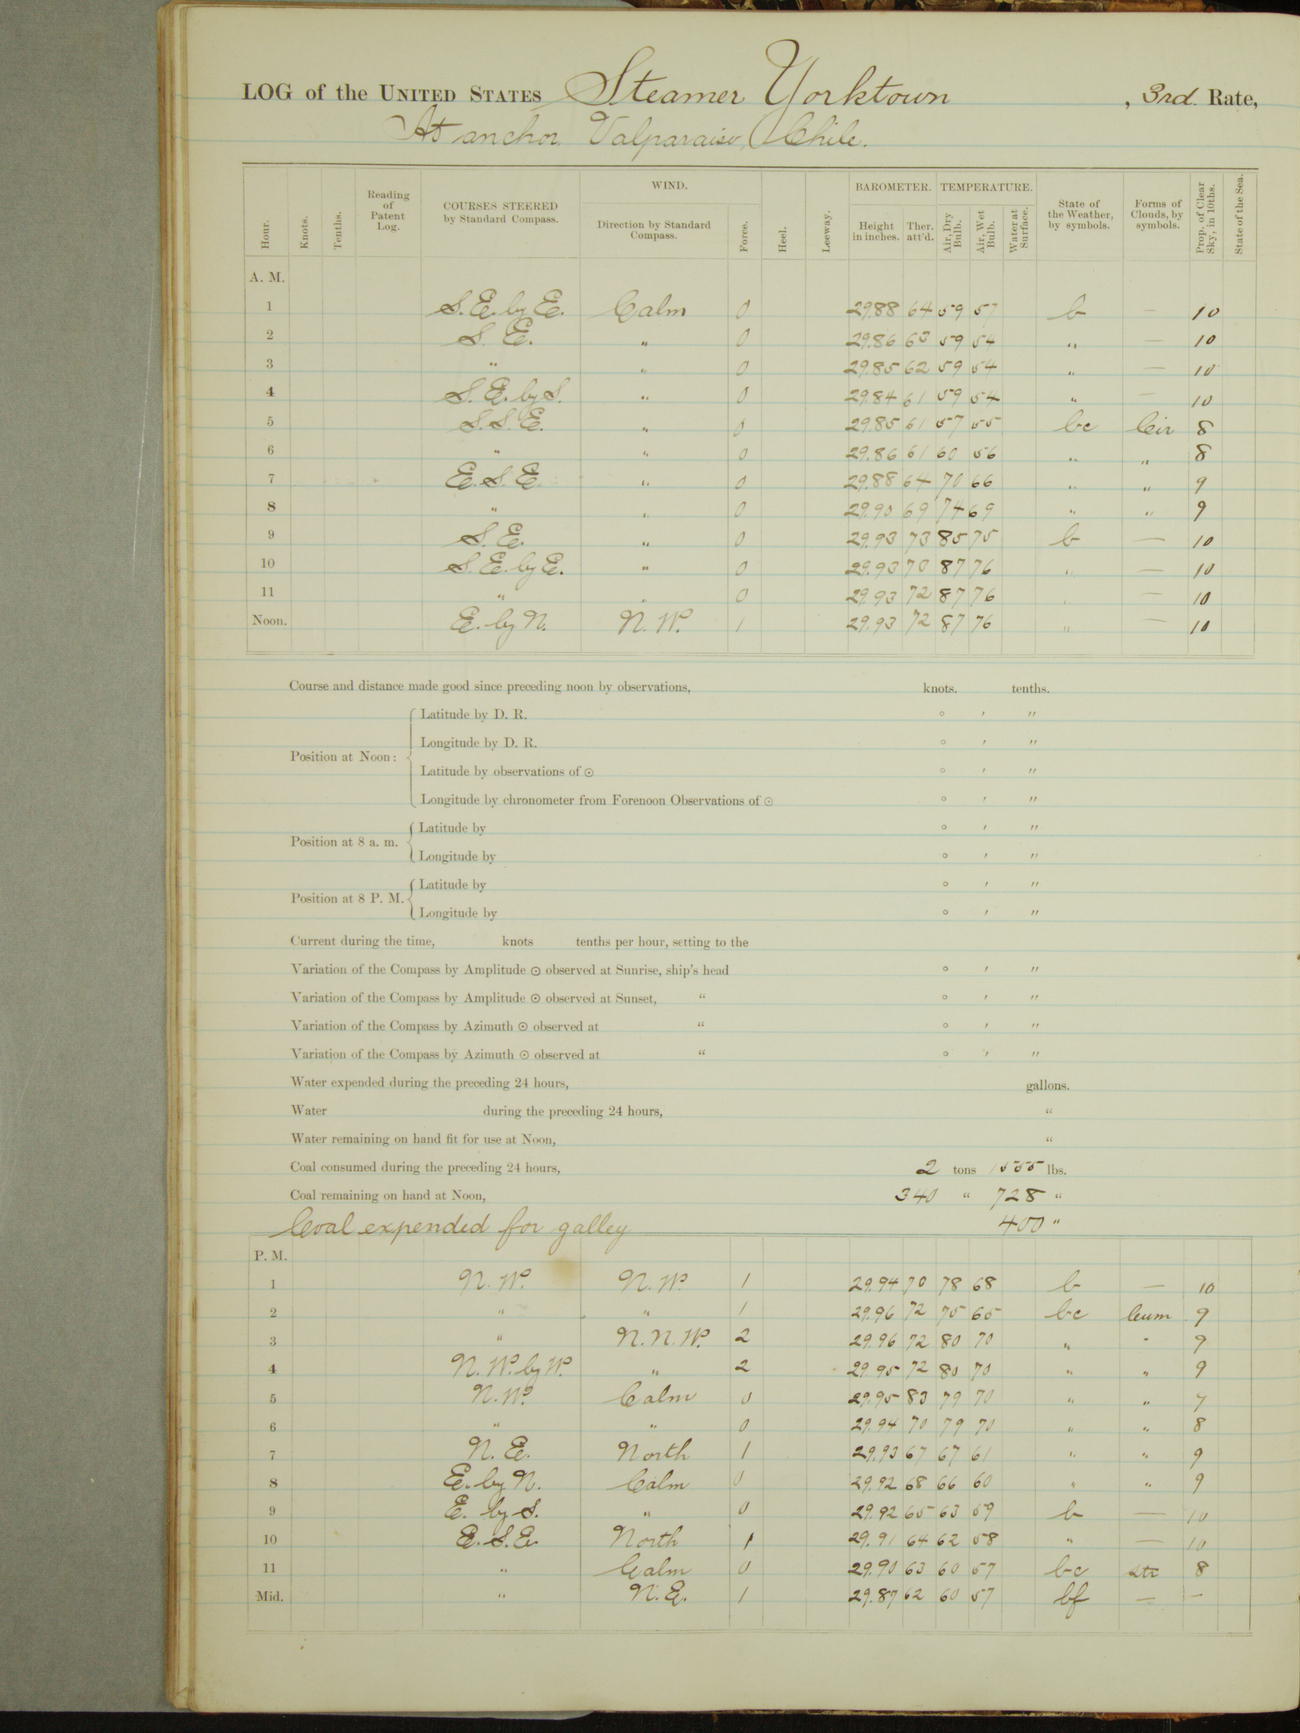 LOG of the UNITED STATES Steamer Yorktown , 3rd Rate,
At anchor Valparaiso, Chile.
Hour. Knots. Tenths. Reading of Patent Log. COURSES STEERED by Standard Compass. WIND. Direction by Standard Compass. Force. Heel. Leeway. BAROMETER. Height in inches. Ther. att'd. TEMPERATURE. Air, Dry Bulb. Air, Wet Bulb. Water at Surface. State of the Weather, by symbols. Forms of Clouds, by symbols. Prop. of Clear Sky, in 10ths. State of the Sea.
A. M.
1 S.E. by E. Calm 0 29.88 64 59 57 b — 10
2 S. E. " 0 29.86 63 59 54 " — 10
3 " " 0 29.85 62 59 54 " — 10
4 S.E. by S. " 0 29.84 61 59 54 " — 10
5 S.S.E. " 0 29.85 61 57 55 bc Cir 8
6 " " 0 29.86 61 60 56 " " 8
7 E.S.E. " 0 29.88 64 70 66 " " 9
8 " " 0 29.90 69 74 69 " " 9
9 S.E. " 0 29.93 73 85 75 b — 10
10 S.E. by E. " 0 29.93 73 87 76 " — 10
11 " " 0 29.93 72 87 76 " — 10
Noon. E. by N. N.W. 1 29.93 72 87 76 " — 10
Course and distance made good since preceding noon by observations, knots. tenths.
Position at Noon: Latitude by D. R. ° ′ ″
Longitude by D. R. ° ′ ″
Latitude by observations of ⊙ ° ′ ″
Longitude by chronometer from Forenoon Observations of ⊙ ° ′ ″
Position at 8 a. m. Latitude by ° ′ ″
Longitude by ° ′ ″
Position at 8 P. M. Latitude by ° ′ ″
Longitude by ° ′ ″
Current during the time, knots tenths per hour, setting to the
Variation of the Compass by Amplitude ⊙ observed at Sunrise, ship's head ° ′ ″
Variation of the Compass by Amplitude ⊙ observed at Sunset, " ° ′ ″
Variation of the Compass by Azimuth ⊙ observed at " ° ′ ″
Variation of the Compass by Azimuth ⊙ observed at " ° ′ ″
Water expended during the preceding 24 hours, gallons.
Water during the preceding 24 hours, "
Water remaining on hand fit for use at Noon, "
Coal consumed during the preceding 24 hours, 2 tons 1555 lbs.
Coal remaining on hand at Noon, 340 " 728 "
Coal expended for galley 400 "
P. M.
1 N.W. N.W. 1 29.94 70 78 68 b — 10
2 " " 1 29.96 72 75 65 bc Cum 9
3 " N.N.W. 2 29.96 72 80 70 " " 9
4 N.W. by W. " 2 29.95 72 80 70 " " 9
5 N.W. Calm 0 29.95 83 79 70 " " 7
6 " " 0 29.94 70 79 70 " " 8
7 N.E. North 1 29.93 67 67 61 " " 9
8 E. by N. Calm 0 29.92 68 66 60 " " 9
9 E. by S. " 0 29.92 65 63 59 b — 10
10 E.S.E. North 1 29.91 64 62 58 " — 10
11 " Calm 0 29.90 63 60 57 bc Str 8
Mid. " N.E. 1 29.87 62 60 57 bf — —